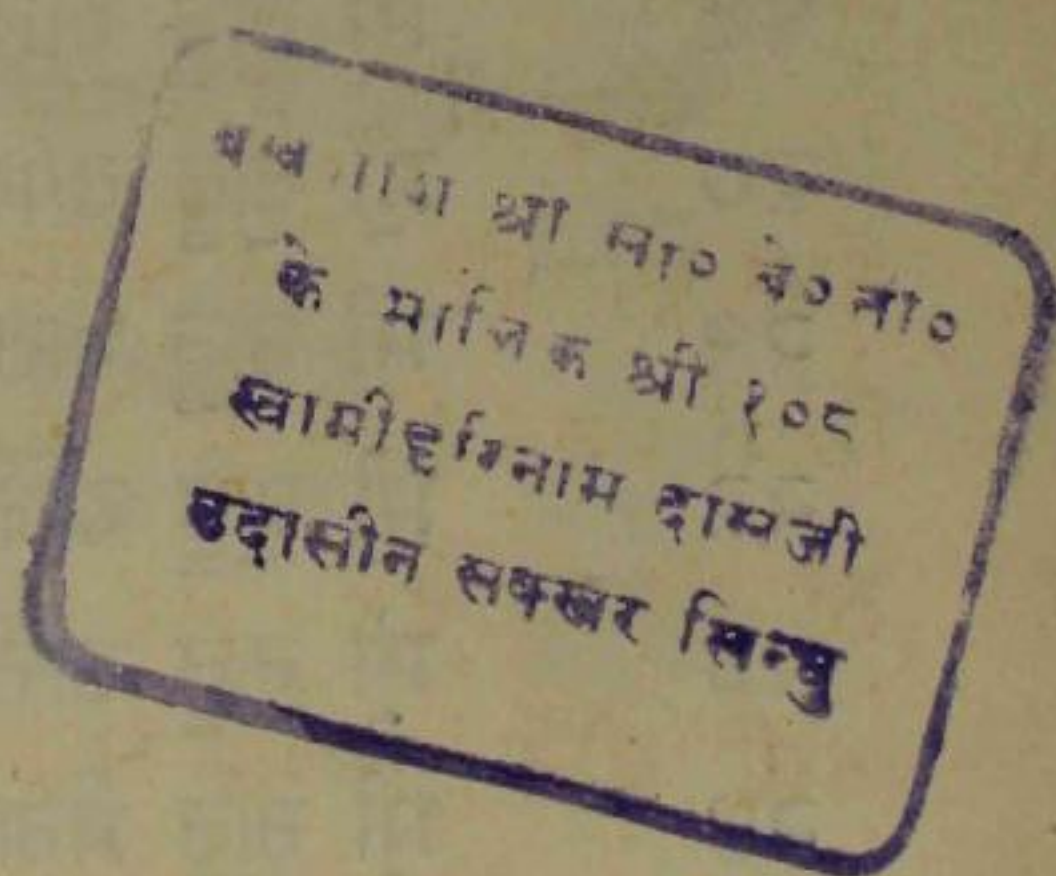 श्री सा० बे० ला०
के मालिक श्री १०८
स्वामीहरिनाम दासजी
उदासीन सक्खर सिन्धु